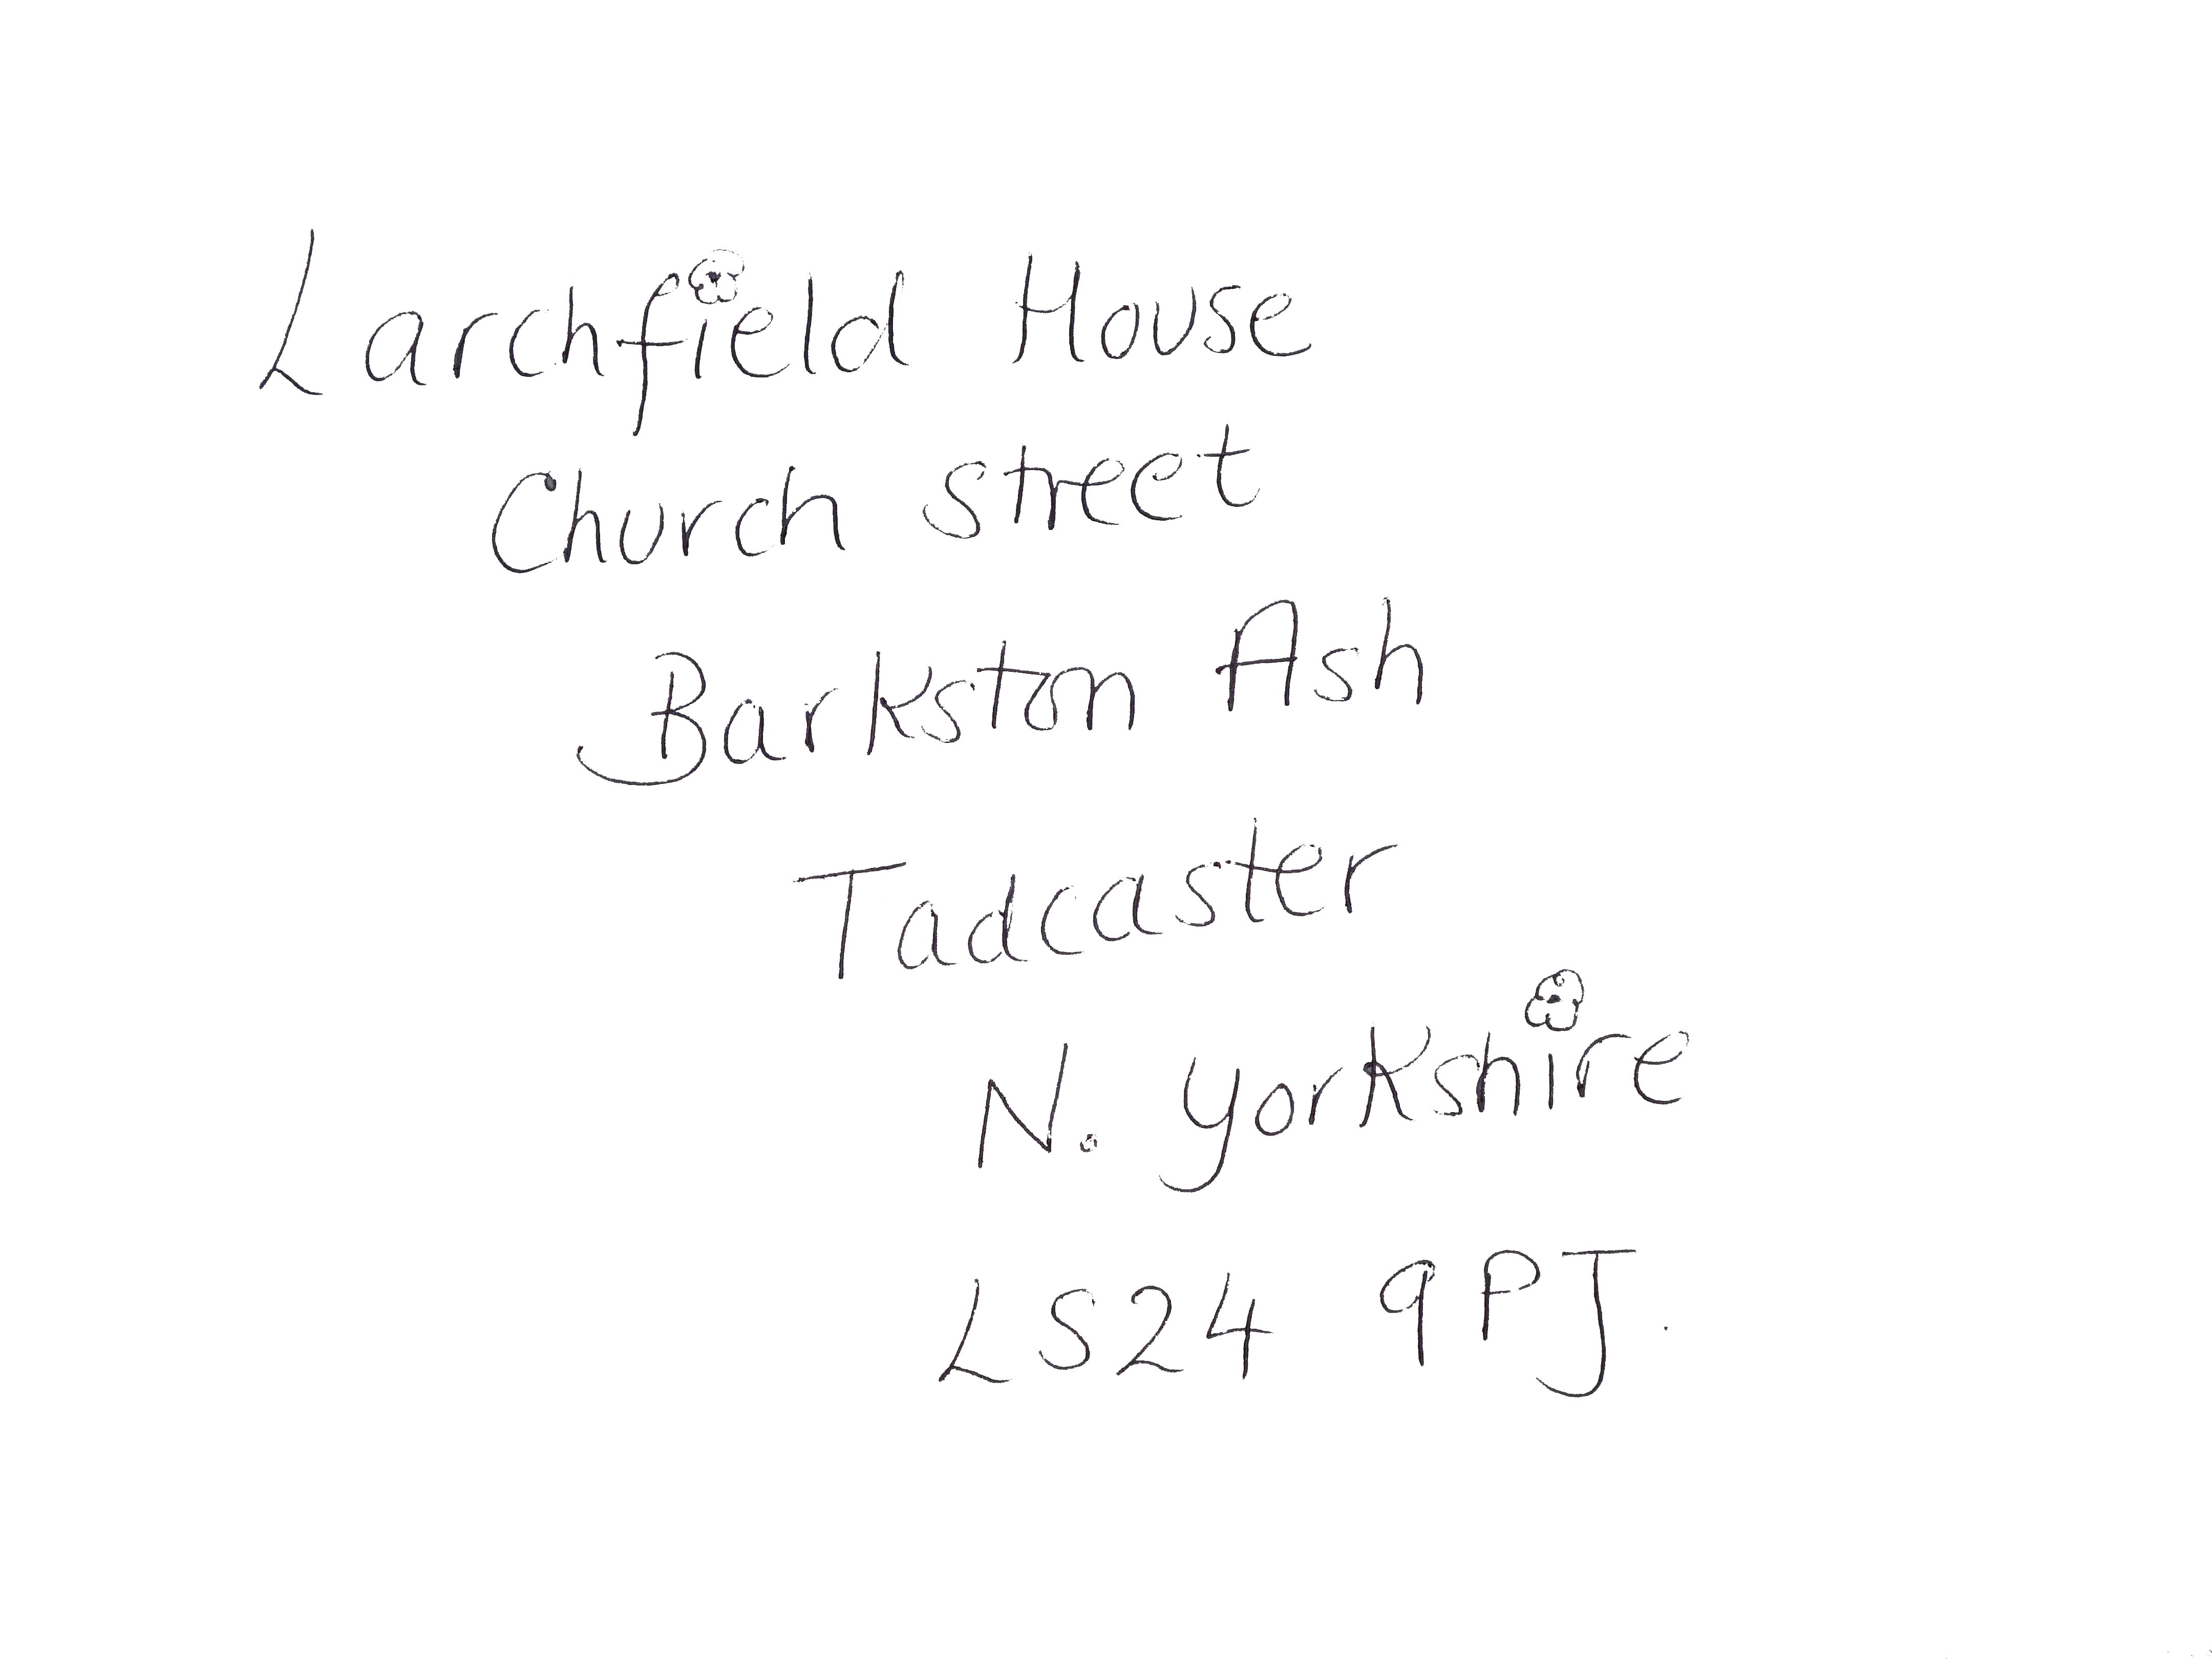 Larchfield House
Church Street
Barkston Ash
Tadcaster
N. Yorkshire
LS24 9PJ.